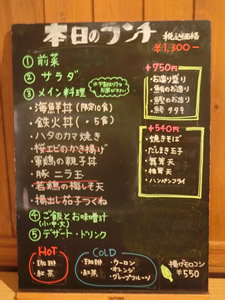 本日のランチ 税込価格
¥1,300-
① 前菜
② サラダ
③ メイン料理
・海鮮丼(限定10食)
・鉄火丼(〃 5食)
・ハタのカマ焼き
・桜エビのかき揚げ
・軍鶏の親子丼
・豚ニラ玉
・若鶏の梅しそ天
・揚出し茄子つくね
④ ご飯とお味噌汁
⑤ デザート・ドリンク
+750円
・お造り盛り
・鮪のお造り
・鰹のお造り
・鰹 タタキ
+540円
・焼きそば
・だしまき玉子
・舞茸天
・ハンペンフライ
HOT
・珈琲
・紅茶
COLD
・珈琲
・紅茶
・ウーロン
・オレンジ
・グレープフルーツ
揚げモロコシ
¥550